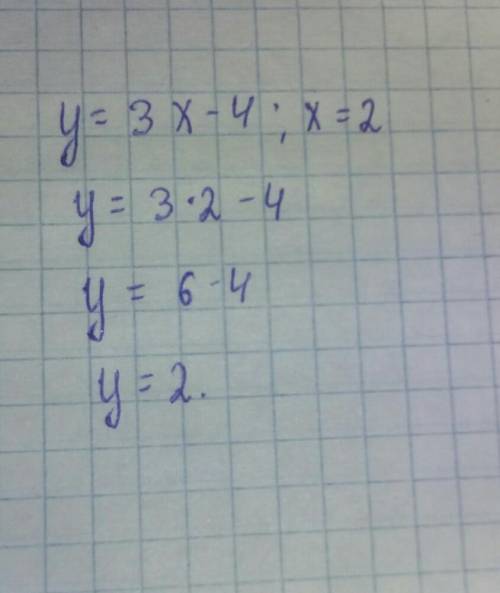 y = 3x - 4; x = 2
y = 3·2 - 4
y = 6 - 4
y = 2.